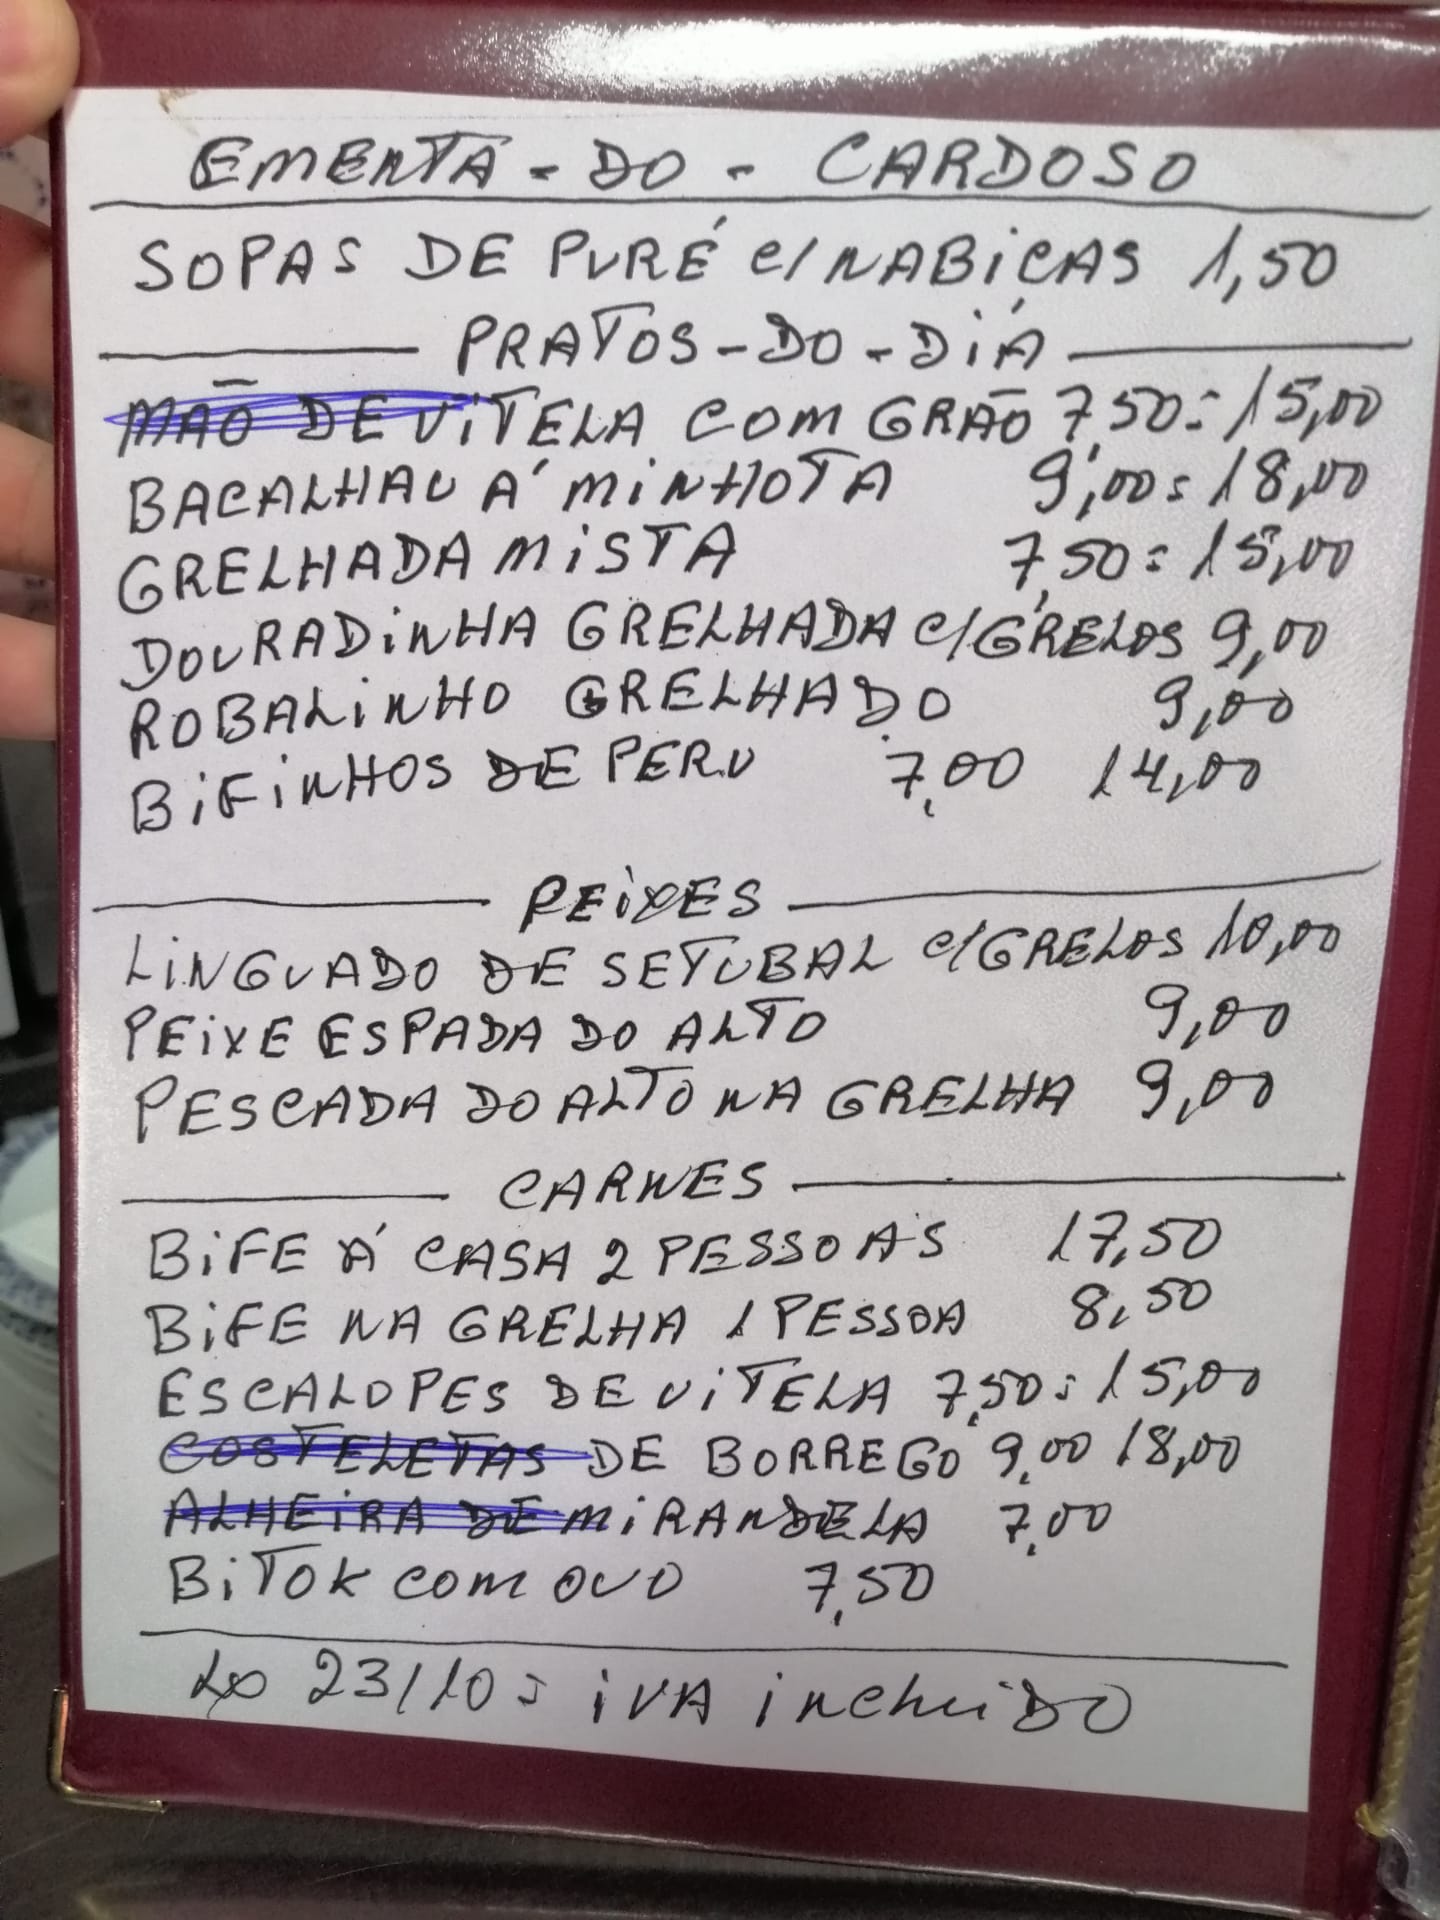 EMENTA - DO - CARDOSO
SOPAS DE PURÉ C/ NABIÇAS 1,50
PRATOS - DO - DIÁ
MAÕ DE VITELA COM GRAÕ 7,50 = 15,00
BACALHAU Á MINHOTA 9,00 = 18,00
GRELHADA MISTA 7,50 = 15,00
DOURADINHA GRELHADA C/ GRELOS 9,00
ROBALINHO GRELHADO 9,00
BIFINHOS DE PERU 7,00 14,00
PEIXES
LINGUADO DE SETUBAL C/ GRELOS 10,00
PEIXE ESPADA DO ALTO 9,00
PESCADA DO ALTO NA GRELHA 9,00
CARNES
BIFE Á CASA 2 PESSOAS 17,50
BIFE NA GRELHA 1 PESSOA 8,50
ESCALOPES DE VITELA 7,50 = 15,00
COSTELETAS DE BORREGO 9,00 18,00
ALHEIRA DE MIRANDELA 7,00
BITOK COM OVO 7,50
23/10 = IVA incluiDO